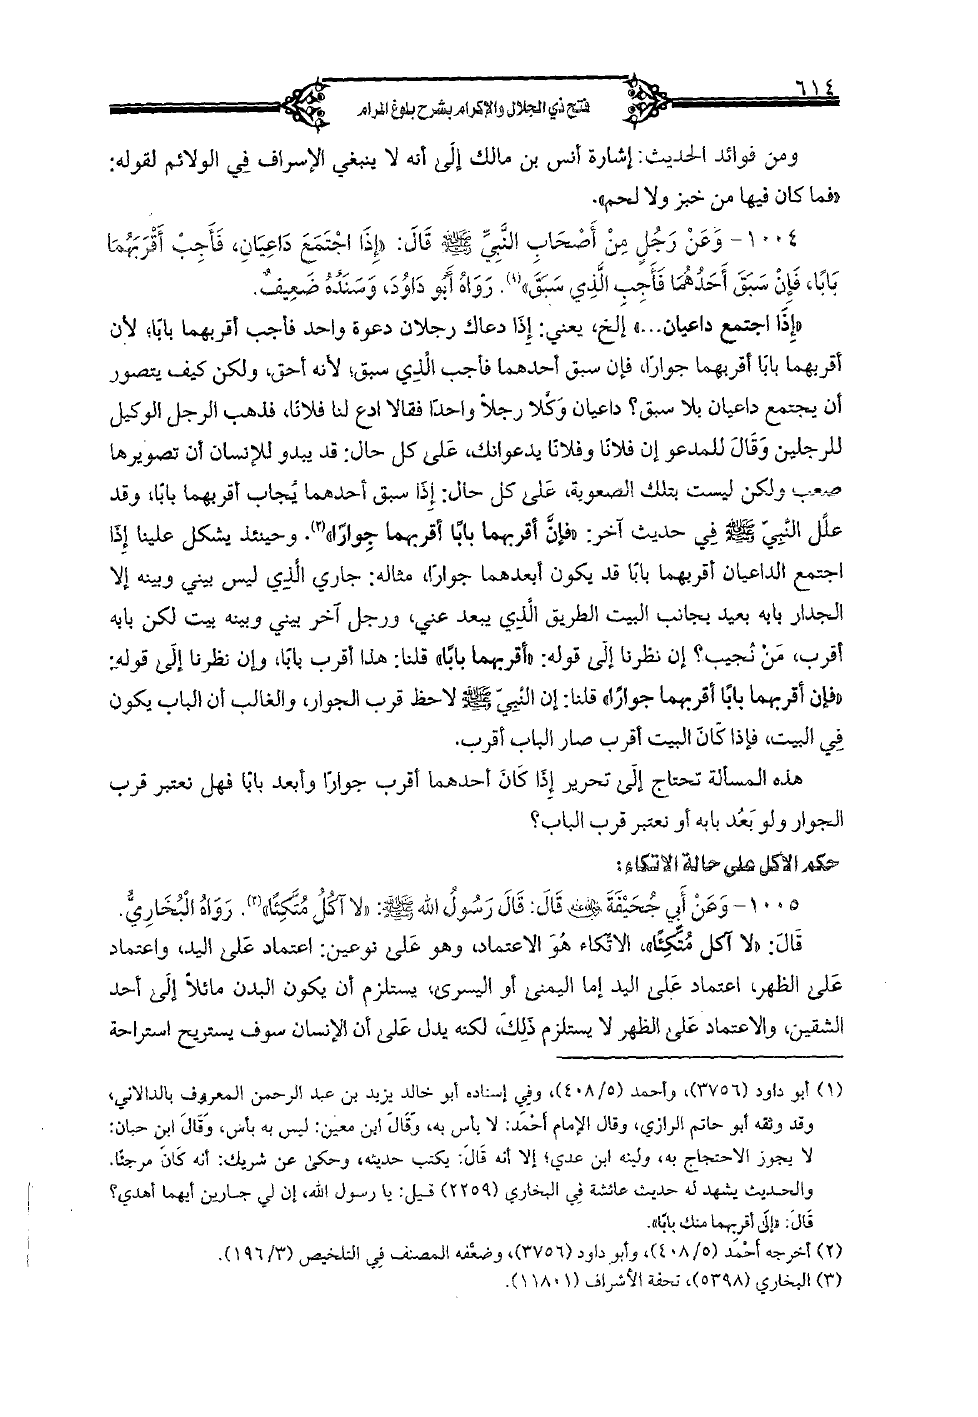 ٦١٤
فتح ذي الجلال والإكرام بشرح بلوغ المرام
ومن فوائد الحديث: إشارة أنس بن مالك إلَى أنه لا ينبغي الإسراف فِي الولائم لقوله:
«فما كان فيها من خبز ولا لحم».
١٠٠٤- وَعَنْ رَجُلٍ مِنْ أَصْحَابِ النَّبِيِّ ﷺ قَالَ: «إِذَا اجْتَمَعَ دَاعِيَانِ، فَأَجِبْ أَقْرَبَهُمَا
بَابًا، فَإِنْ سَبَقَ أَحَدُهُمَا فَأَجِبِ الَّذِي سَبَقَ»(١). رَوَاهُ أَبُو دَاوُدَ، وَسَنَدُهُ ضَعِيفٌ.
«إِذَا اجتمع داعيان...» إلخ، يعني: إِذَا دعاك رجلان دعوة واحد فأجب أقربهما بابًا؛ لأن
أقربهما بابًا أقربهما جوارًا، فإن سبق أحدهما فأجب الَّذِي سبق؛ لأنه أحق، ولكن كيف يتصور
أن يجتمع داعيان بلا سبق؟ داعيان وَكَّلا رجلاً واحدًا فقالا ادع لنا فلانًا، فذهب الرجل الوكيل
للرجلين وَقَالَ للمدعو إن فلانًا وفلانًا يدعوانك، عَلَى كل حال: قد يبدو للإنسان أن تصويرها
صعب ولكن ليست بتلك الصعوبة، عَلَى كل حال: إِذَا سبق أحدهما يُجاب أقربهما بابًا، وقد
علَّل النَّبِيّ ﷺ فِي حديث آخر: «فإنَّ أقربهما بابًا أقربهما جِوارًا»(٢). وحينئذ يشكل علينا إِذَا
اجتمع الداعيان أقربهما بابًا قد يكون أبعدهما جوارًا، مثاله: جاري الَّذِي ليس بيني وبينه إلا
الجدار بابه بعيد بجانب البيت الطريق الَّذِي يبعد عني، ورجل آخر بيني وبينه بيت لكن بابه
أقرب، مَنْ نُجيب؟ إن نظرنا إلَى قوله: «أقربهما بابًا» قلنا: هذا أقرب بابًا، وإن نظرنا إلَى قوله:
«فإن أقربهما بابًا أقربهما جوارًا» قلنا: إن النَّبِيّ ﷺ لاحظ قرب الجوار، والغالب أن الباب يكون
فِي البيت، فإذا كَانَ البيت أقرب صار الباب أقرب.
هذه المسألة تحتاج إلَى تحرير إِذَا كَانَ أحدهما أقرب جوارًا وأبعد بابًا فهل نعتبر قرب
الجوار ولو بَعُد بابه أو نعتبر قرب الباب؟
حكم الأكل على حالة الاتكاء:
١٠٠٥- وَعَنْ أَبِي جُحَيْفَةَ رضي الله عنه قَالَ: قَالَ رَسُولُ اللهِ ﷺ: «لا آكُلُ مُتَّكِئًا»(٣). رَوَاهُ الْبُخَارِيُّ.
قَالَ: «لا آكل مُتَّكِئًا»، الاتكاء هُوَ الاعتماد، وهو عَلَى نوعين: اعتماد عَلَى اليد، واعتماد
عَلَى الظهر، اعتماد عَلَى اليد إما اليمنى أو اليسرى، يستلزم أن يكون البدن مائلاً إلَى أحد
الشقين، والاعتماد عَلَى الظهر لا يستلزم ذَلِكَ، لكنه يدل عَلَى أن الإنسان سوف يستريح استراحة
(١) أبو داود (٣٧٥٦)، وأحمد (٤٠٨/٥)، وفِي إسناده أبو خالد يزيد بن عبد الرحمن المعروف بالدالاني،
وقد وثقه أبو حاتم الرازي، وقال الإمام أَحْمَد: لا بأس به، وَقَالَ ابن معين: ليس به بأس، وَقَالَ ابن حبان:
لا يجوز الاحتجاج به، ولينه ابن عدي؛ إلا أنه قَالَ: يكتب حديثه، وحكى عن شريك: أنه كَانَ مرجئًا.
والحديث يشهد له حديث عائشة فِي البخاري (٢٢٥٩) قيل: يا رسول الله، إن لي جارين أيهما أهدي؟
قَالَ: «إلَى أقربهما منك بابًا».
(٢) أخرجه أَحْمَد (٤٠٨/٥)، وأبو داود (٣٧٥٦)، وضعَّفه المصنف فِي التلخيص (١٩٦/٣).
(٣) البخاري (٥٣٩٨)، تحفة الأشراف (١١٨٠١).